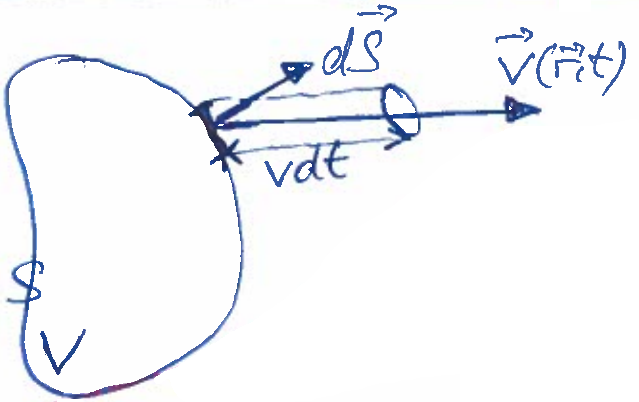 dS⃗
v⃗(r⃗,t)
vdt
S
V